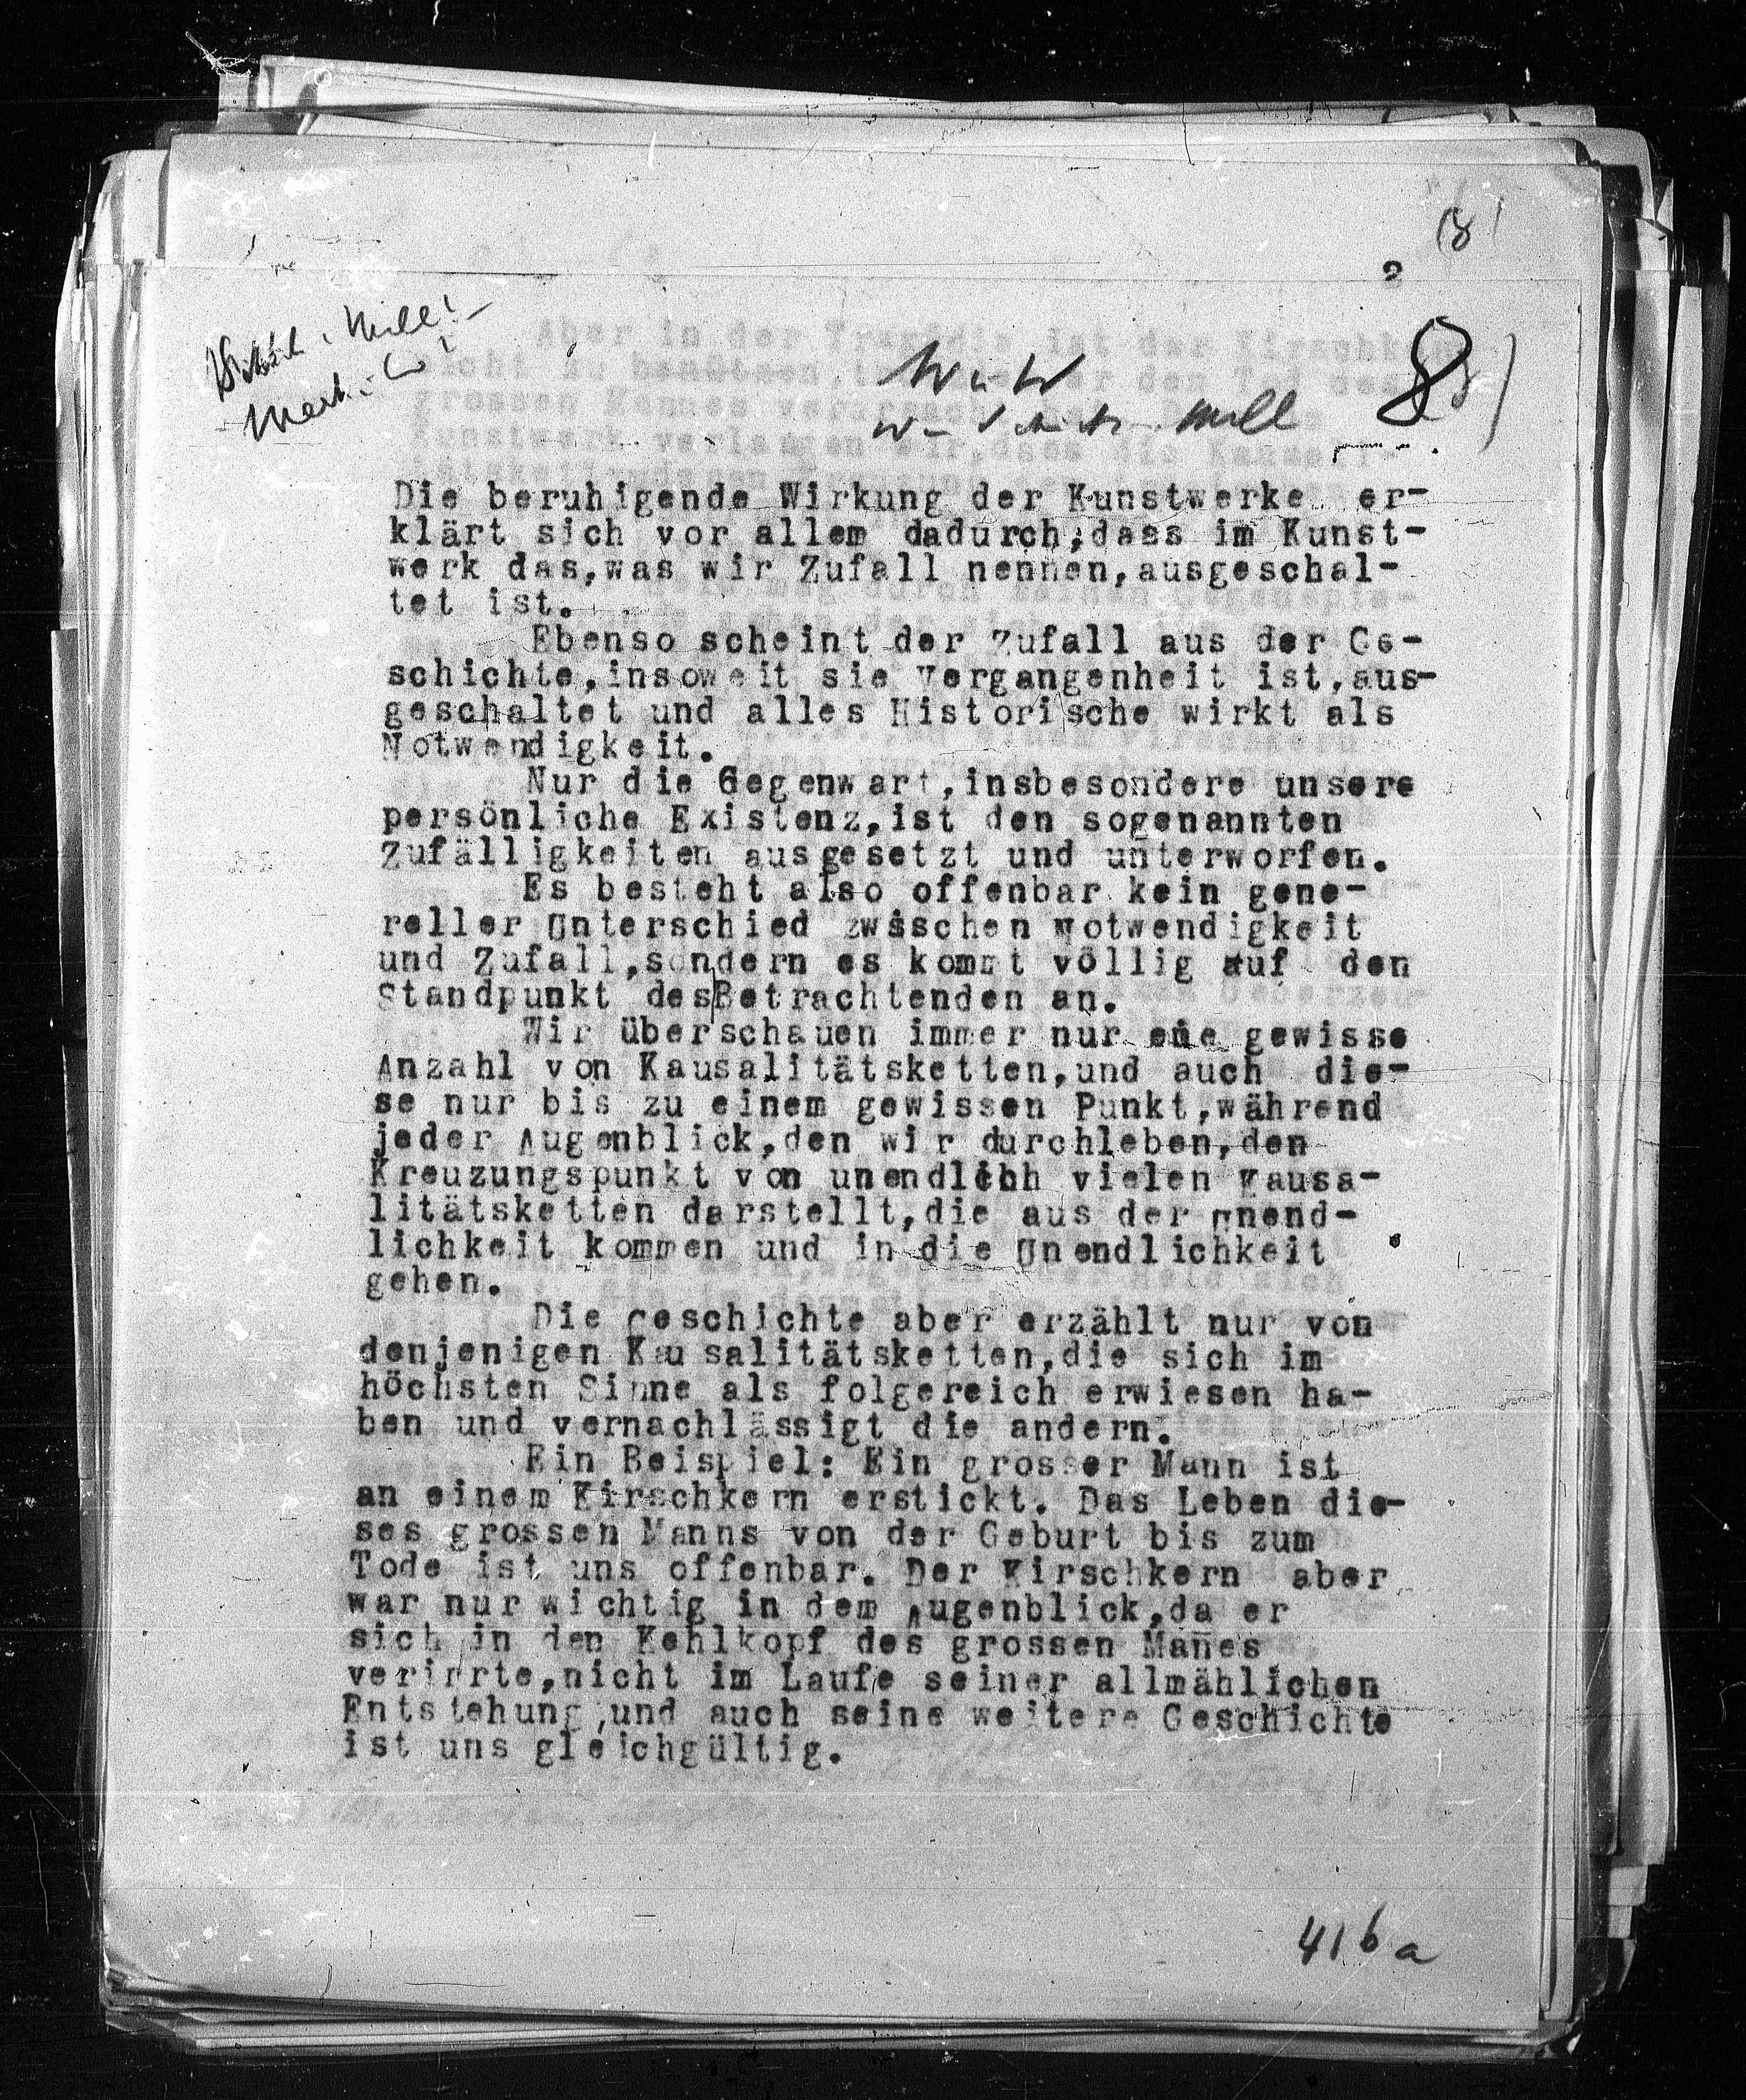 (8)
2
8
Will
Die beruhigende Wirkung der Kunstwerke er-
klärt sich vor allem dadurch,dass im Kunst-
werk das,was wir Zufall nennen,ausgeschal-
tet ist.
Ebenso scheint der Zufall aus der Ge-
schichte,insoweit sie Vergangenheit ist,aus-
geschaltet und alles Historische wirkt als
Notwendigkeit.
Nur die Gegenwart,insbesondere unsere
persönliche Existenz,ist den sogenannten
Zufälligkeiten ausgesetzt und unterworfen.
Es besteht also offenbar kein gene-
reller Unterschied zwsschen Notwendigkeit
und Zufall,sondern es kommt völlig auf den
Standpunkt des|Betrachtenden an.
Wir überschauen immer nur eine gewisse
Anzahl von Kausalitätsketten,und auch die-
se nur bis zu einem gewissen Punkt,während
jeder Augenblick,den wir durchleben,den
Kreuzungspunkt von unendlich vielen Kausa-
litätsketten darstellt,die aus der Unend-
lichkeit kommen und in die Unendlichkeit
gehen.
Die Geschichte aber erzählt nur von
denjenigen Kausalitätsketten,die sich im
höchsten Sinne als folgereich erwiesen ha-
ben und vernachlässigt die andern.
Ein Beispiel: Ein grosser Mann ist
an einem Kirschkern erstickt. Das Leben die-
ses grossen Manns von der Geburt bis zum
Tode ist uns offenbar. Der Kirschkern aber
war nur wichtig in dem Augenblick,da er
sich in den Kehlkopf des grossen Manes
verirrte,nicht im Laufe seiner allmählichen
Entstehung,und auch seine weitere Geschichte
ist uns gleichgültig.
416a